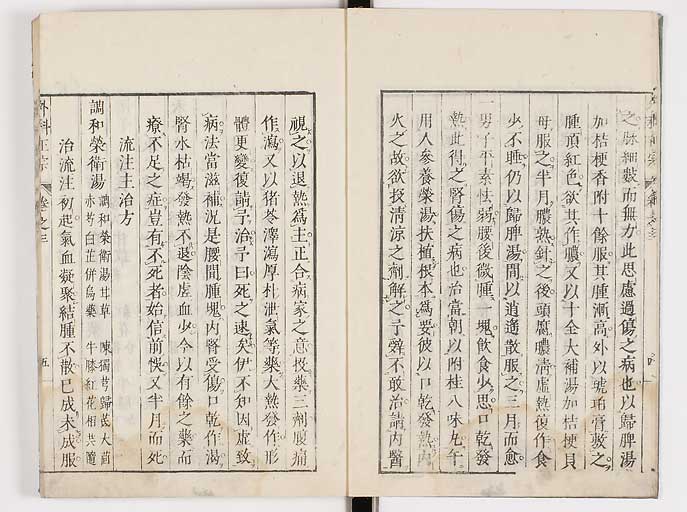 之脉細數而無力此思慮過傷之病也以歸脾湯
加桔梗香附十餘服其腫漸高外以琥珀膏敷之
腫頂紅色欲其作膿又以十全大補湯加桔梗貝
母服之半月膿熟針之後頭腐膿清虛熱復作食
少不睡仍以歸脾湯間以逍遙散服之三月而愈
一男子平素怯弱腰後微腫一塊飲食少思口乾發
熱此得之腎傷之病也治當朝以附桂八味丸午
用人參養榮湯扶植根本爲要彼以口乾發熱內
火之故欲投清涼之劑解之予辭不敢治請內醫
視之以退熱爲主正合病家之意投藥三劑腹痛
作瀉又以猪苓澤瀉厚朴泄氣等藥大熱發作形
體更變復請予治予曰死之速矣伊不知因虛致
病法當滋補況是腰間腫塊內腎受傷口乾作渴
腎水枯竭發熱不退陰虛血少今以有餘之藥而
療不足之症豈有不死者始信前悞又半月而死
流注主治方
調和榮衛湯 調和榮衛湯甘草 陳獨芎歸芪大茴
赤芍白芷併烏藥 牛膝紅花相共隨
治流注初起氣血凝聚結腫不散已成未成服
外科正宗 卷之三 五